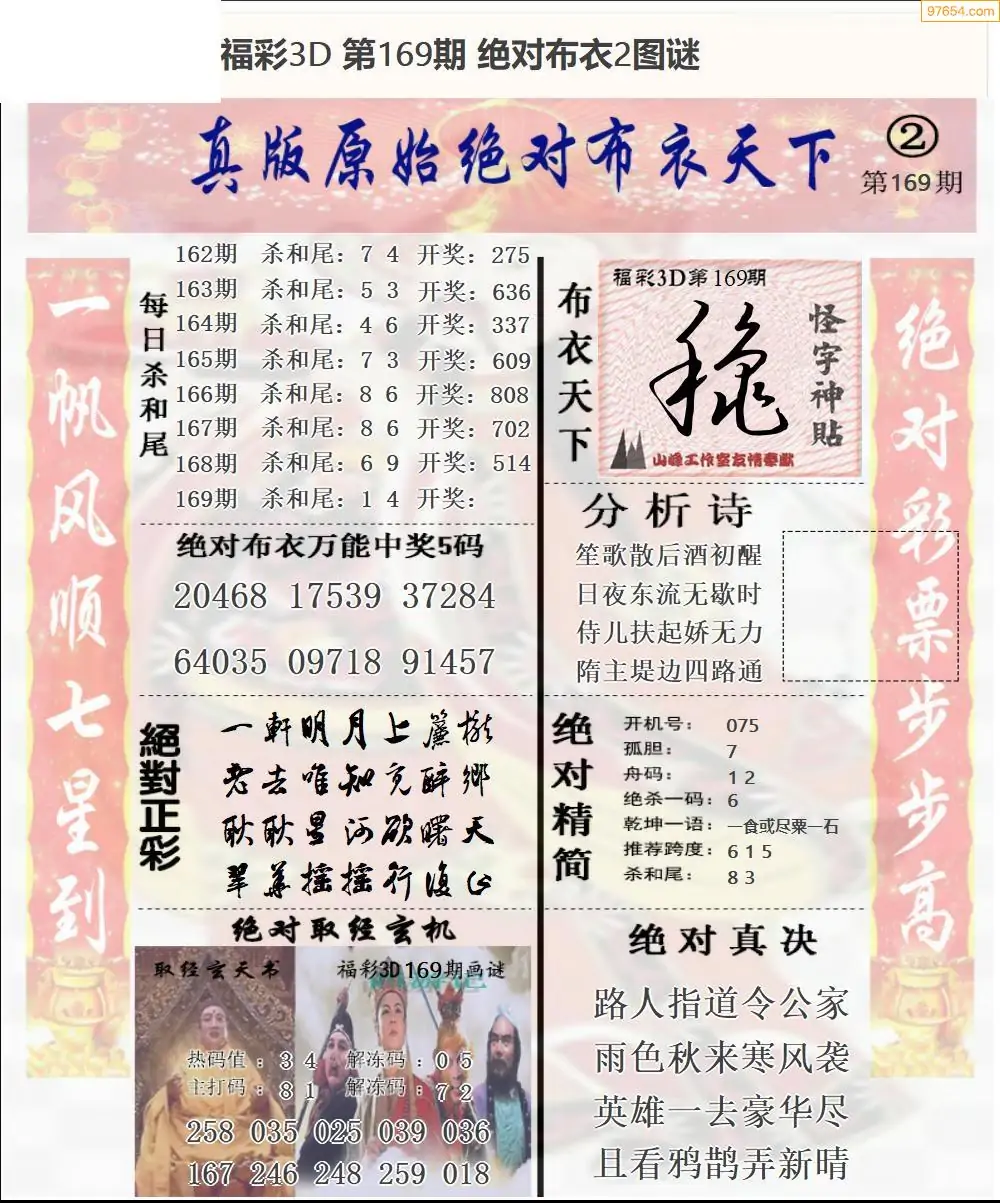 97654.com
福彩3D 第169期 绝对布衣2图谜
真版原始绝对布衣天下
②
第169期
一帆风顺七星到
每日杀和尾
162期 杀和尾：7 4 开奖：275
163期 杀和尾：5 3 开奖：636
164期 杀和尾：4 6 开奖：337
165期 杀和尾：7 3 开奖：609
166期 杀和尾：8 6 开奖：808
167期 杀和尾：8 6 开奖：702
168期 杀和尾：6 9 开奖：514
169期 杀和尾：1 4 开奖：
绝对布衣万能中奖5码
20468 17539 37284
64035 09718 91457
絕對正彩
一軒明月上簾櫳
老去唯知充醉鄉
耿耿星河欲曙天
翠華搖搖行復止
绝对取经玄机
取经玄天书
福彩3D169期画谜
热码值：3 4 解冻码：0 5
主打码：8 1 解冻码：7 2
258 035 025 039 036
167 246 248 259 018
布衣天下
福彩3D第169期
怪字神貼
山峰工作室友情奉献
分析诗
笙歌散后酒初醒
日夜东流无歇时
侍儿扶起娇无力
隋主堤边四路通
绝对精简
开机号：075
孤胆：7
舟码：1 2
绝杀一码：6
乾坤一语：一食或尽粟一石
推荐跨度：6 1 5
杀和尾：8 3
绝对真决
路人指道令公家
雨色秋来寒风袭
英雄一去豪华尽
且看鸦鹊弄新晴
绝对彩票步步高